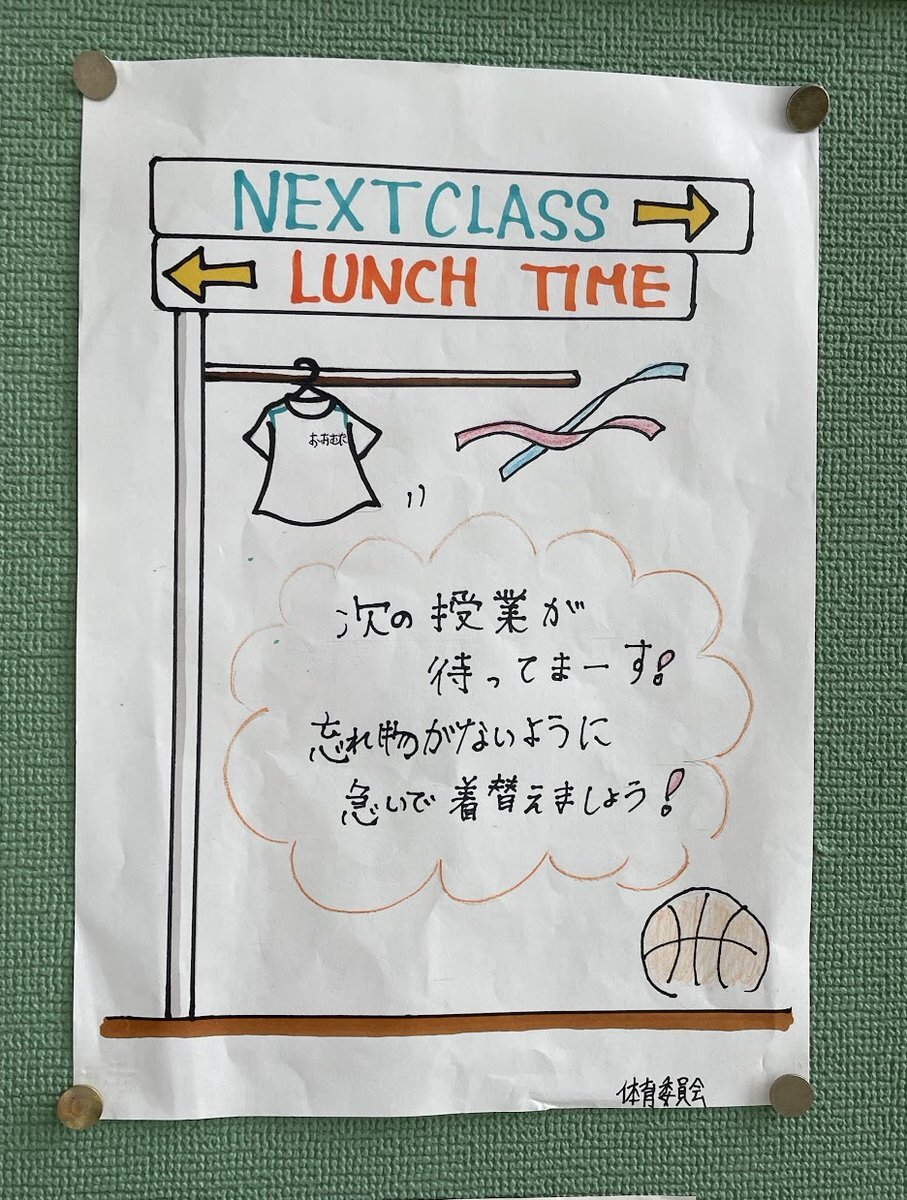 NEXT CLASS
LUNCH TIME
おおむた
次の授業が
待ってまーす!
忘れ物がないように
急いで着替えましょう!
体育委員会